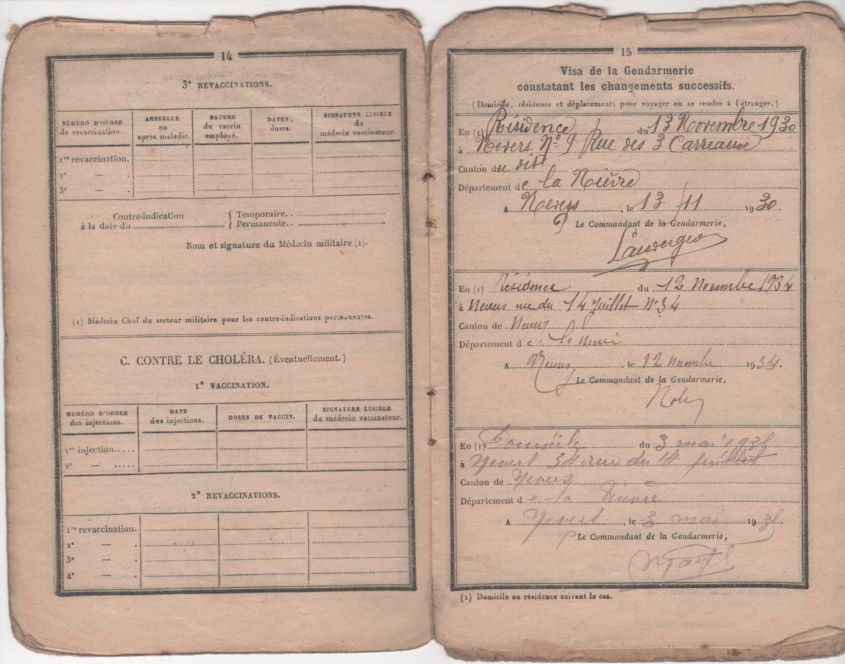 14
3º REVACCINATIONS.
NUMÉRO D'ORDRE de revaccination.
ANNUELLE ou après maladie.
NATURE du vaccin employé.
DATES, doses.
SIGNATURE LISIBLE du médecin vaccinateur.
1re revaccination.
2e —
3e —
Contre-indication à la date du
Temporaire.
Permanente.
Nom et signature du Médecin militaire (1).
(1) Médecin Chef du secteur militaire pour les contre-indications permanentes.
C. CONTRE LE CHOLÉRA. (Éventuellement.)
1º VACCINATION.
NUMÉRO D'ORDRE des injections.
DATE des injections.
DOSES DE VACCIN.
SIGNATURE LISIBLE du médecin vaccinateur.
1re injection
2e —
2º REVACCINATIONS.
1re revaccination.
2e —
3e —
4e —
15
Visa de la Gendarmerie
constatant les changements successifs.
(Domicile, résidence et déplacements pour voyager ou se rendre à l'étranger.)
En (1) Résidence du 13 Novembre 1930
à Nevers Nº 9 Rue des 3 Carreaux
Canton de dit
Département de la Nièvre
A Nevers, le 13/11 1930.
Le Commandant de la Gendarmerie,
En (1) Résidence du 12 Novembre 1934
à Nevers rue du 14 Juillet Nº 34
Canton de Nevers
Département de la Nièvre
A Nevers, le 12 novembre 1934.
Le Commandant de la Gendarmerie,
En (1) Domicile du 3 mai
à Nevers 34 rue du 14 juillet
Canton de Nevers
Département de la Nièvre
A Nevers, le 3 mai
Le Commandant de la Gendarmerie,
(1) Domicile ou résidence suivant le cas.